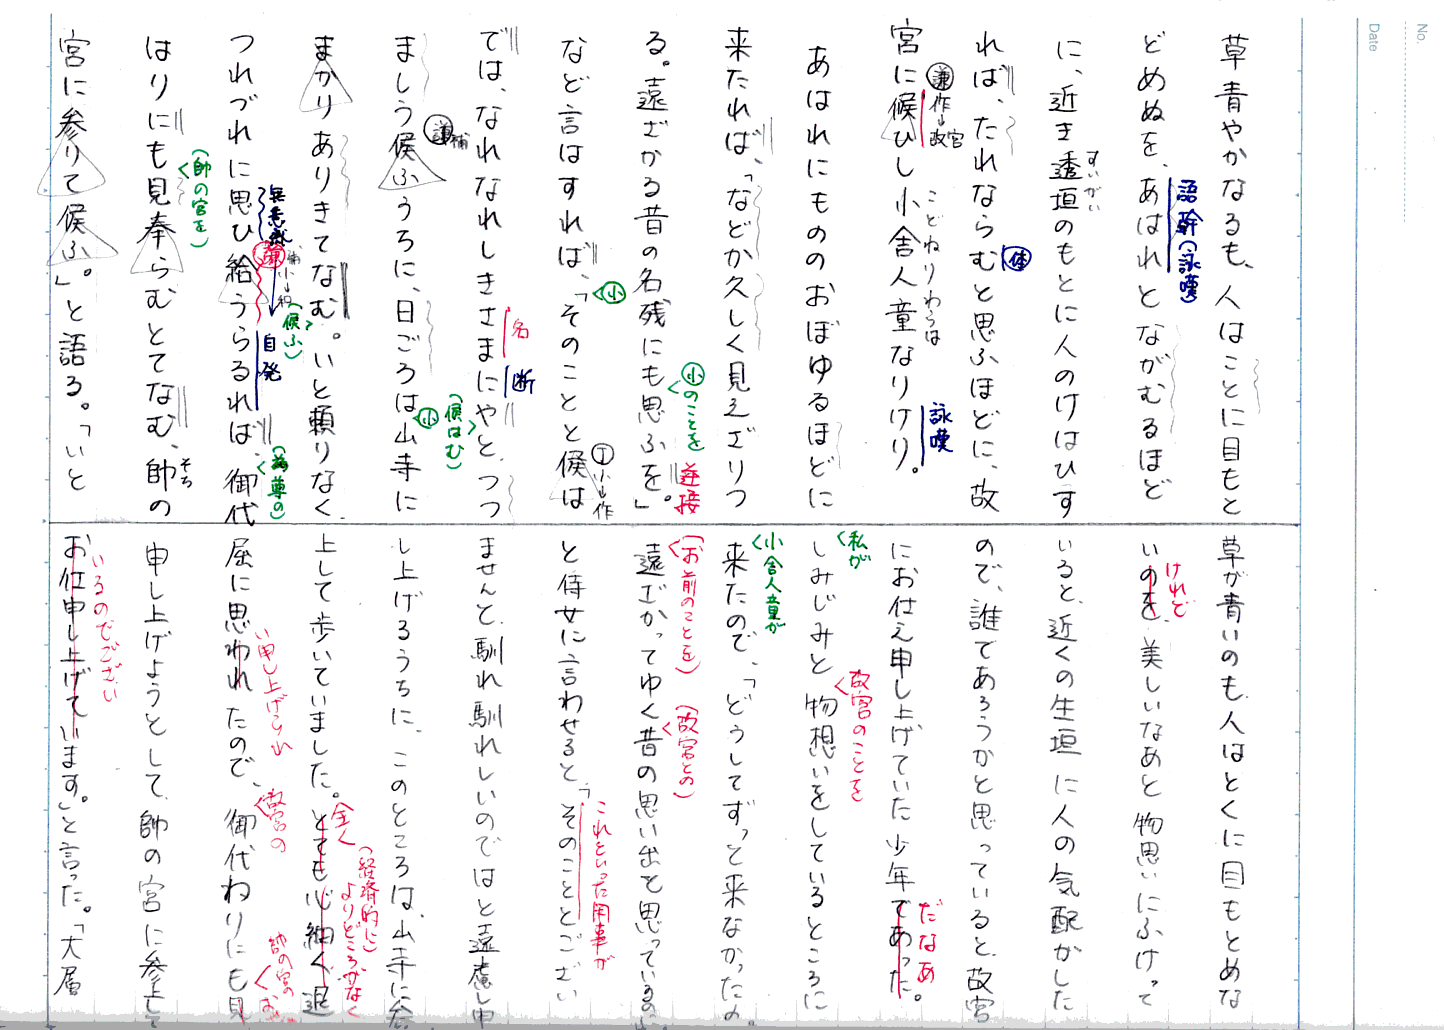 No.
Date
草青やかなるも、人はことに目もと
どめぬを、あはれとながむるほど
語幹(詠嘆)
に、近き透垣のもとに人のけはひす
すいがい
れば、たれならむと思ふほどに、故
体
宮に候ひし小舎人童なりけり。
謙 作→故宮
こどねりわらは
詠嘆
あはれにもののおぼゆるほどに
来たれば、「などか久しく見えざりつ
る。遠ざかる昔の名残にも思ふを。」
小のことを
逆接
など言はすれば、「そのことと候は
小
丁 小→作
では、なれなれしきさまにやと、つつ
名
断
(候はむ)
ましう候ふうちに、日ごろは山寺に
謙補
小
まかりありきてなむ。いと頼りなく
(候ふ)
つれづれに思ひ給うらるれば、御代
無意識
謙
補
自発
(為尊の)
はりにも見奉らむとてなむ、帥の
(帥の宮を)
そち
宮に参りて候ふ」。と語る。「いと
草が青いのも、人はとくに目もとめな
いのを、美しいなあと物思いにふけって
けれど
いると、近くの生垣に人の気配がした
ので、誰であろうかと思っていると、故宮
にお仕え申し上げていた少年であった。
だなあ
しみじみと物想いをしているところに
私が
故宮のことを
来たので、「どうしてずっと来なかったの。
小舎人童が
遠ざかってゆく昔の思い出と思っているの
(お前のことを)
(故宮との)
と侍女に言わせると、「そのこととござい
これといった用事が
ませんと、馴れ馴れしいのではと遠慮し申
し上げるうちに、このところは、山寺に参
上して歩いていました。とても心細く、退
全く
(経済的に)
よりどころがなく
屈に思われたので、御代わりにも見
い申し上げられ
故宮の
帥の宮の
申し上げようとして、帥の宮に参上して
お仕申し上げています。」と言った。「大層
いるのでござい